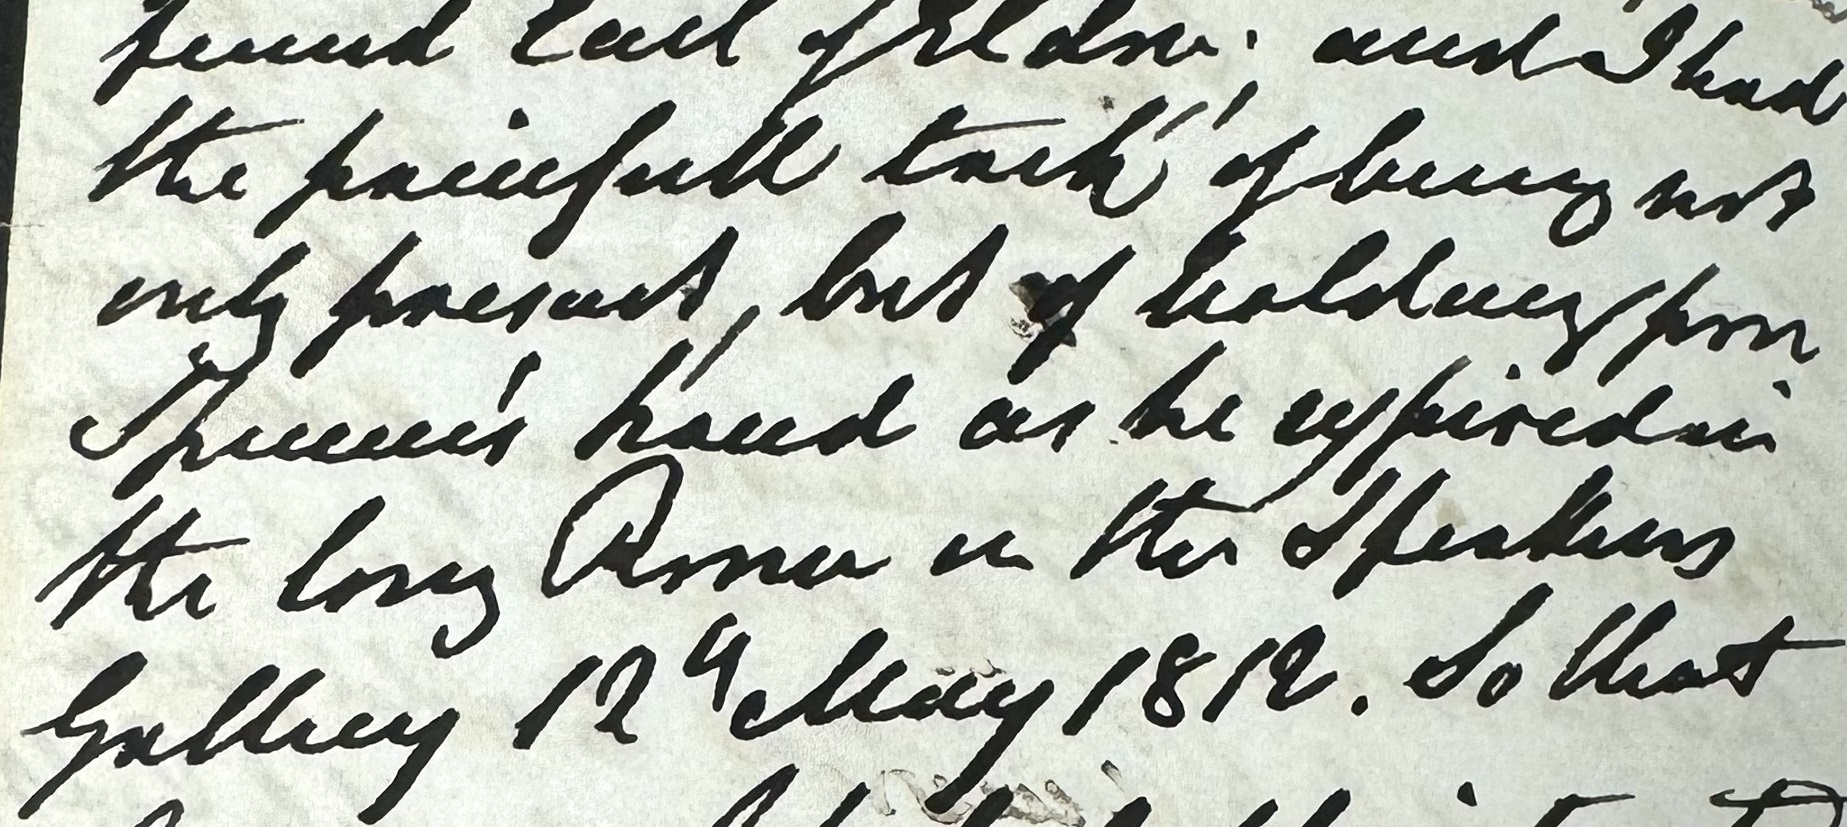 friend Earl of Eldon; and I had
the painfull task of being not
only present, but of holding poor
Spencer's hand as he expired in
the long in the Speakers
Gallery 12th May 1812. So that